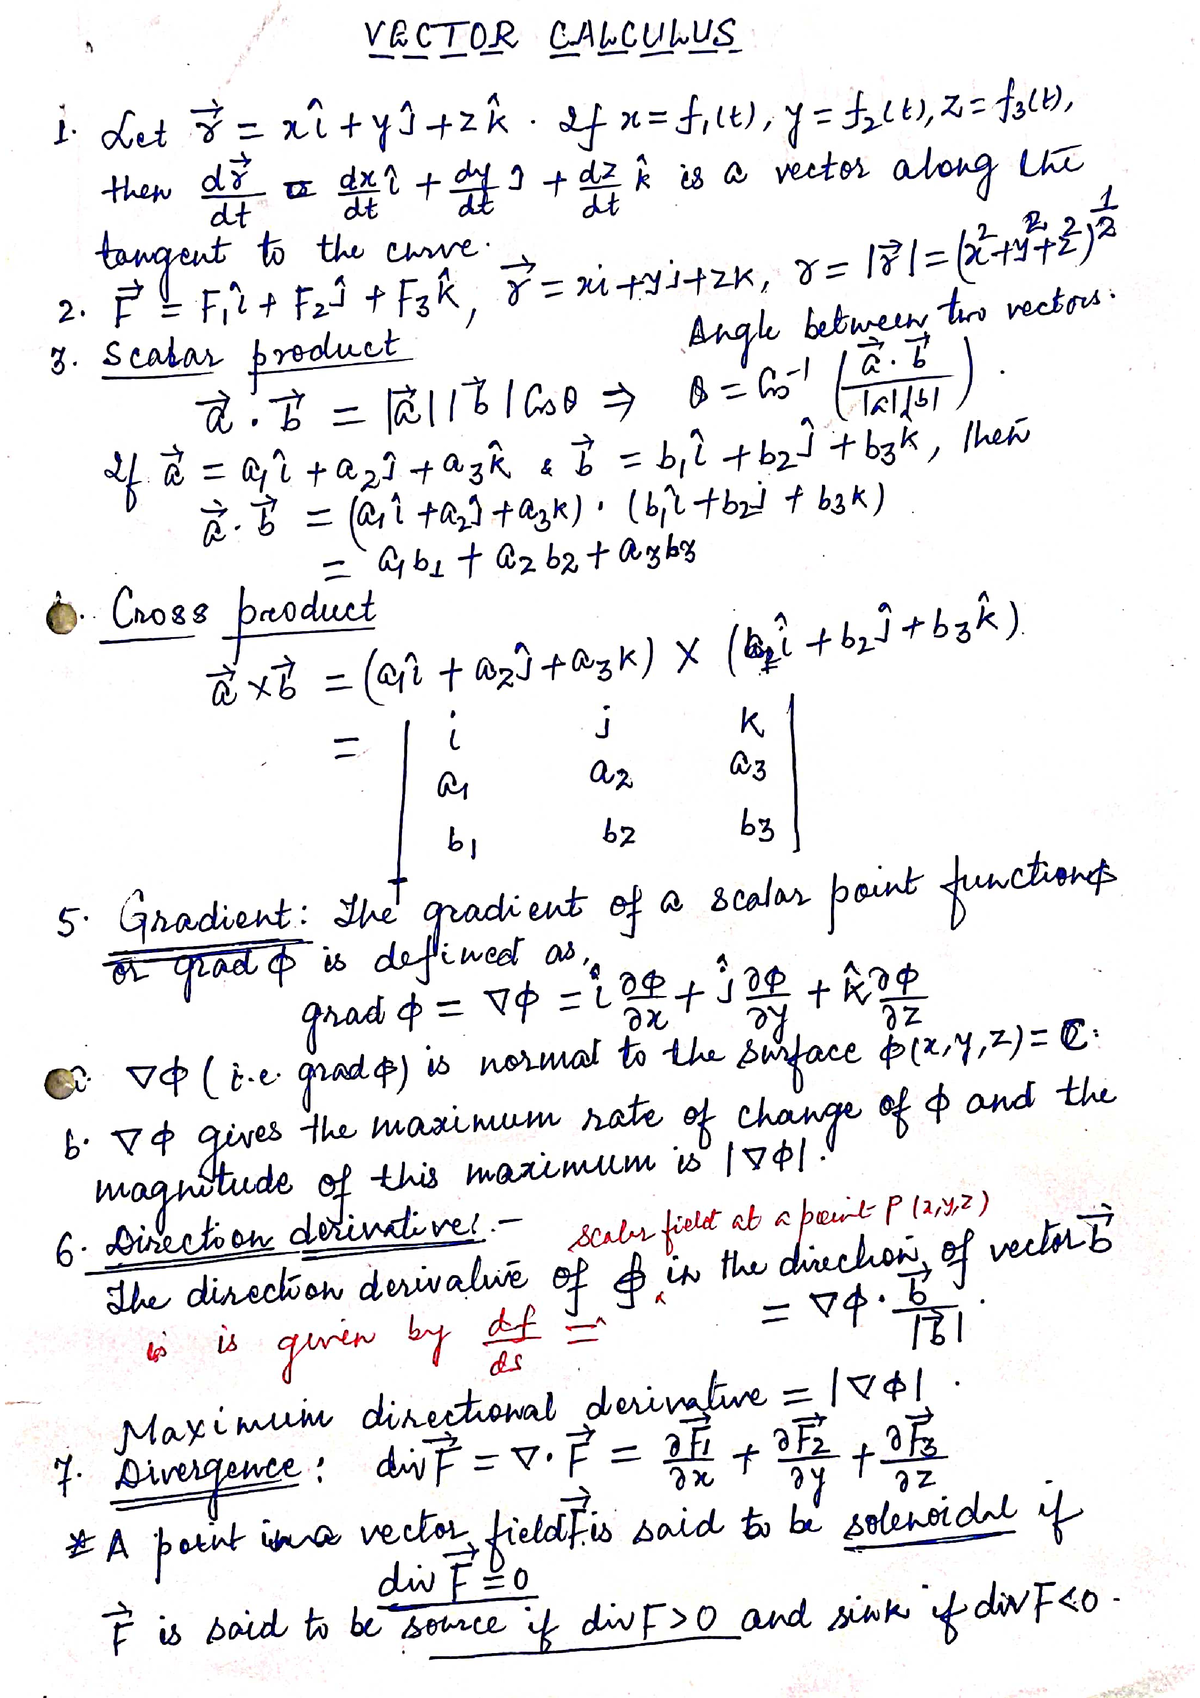 VECTOR CALCULUS
1. Let r⃗ = xî + yĵ + zk̂ . If x = f₁(t), y = f₂(t), z = f₃(t),
then dr⃗/dt = dx/dt î + dy/dt ĵ + dz/dt k̂ is a vector along the
tangent to the curve.
2. F⃗ = F₁î + F₂ĵ + F₃k̂, r⃗ = xi + yj + zk, r = |r⃗| = (x² + y² + z²)^(1/2)
3. Scalar product Angle between two vectors.
a⃗ . b⃗ = |a⃗| |b⃗| Cosθ ⇒ θ = Cos⁻¹ (a⃗ . b⃗ / |a| |b|) .
If a⃗ = a₁î + a₂ĵ + a₃k̂ & b⃗ = b₁î + b₂ĵ + b₃k̂, then
a⃗ . b⃗ = (a₁î + a₂ĵ + a₃k) . (b₁î + b₂j + b₃k)
= a₁b₁ + a₂b₂ + a₃b₃
Cross product
a⃗ × b⃗ = (a₁î + a₂ĵ + a₃k) × (b₁î + b₂ĵ + b₃k̂).
= | i j k |
| a₁ a₂ a₃ |
| b₁ b₂ b₃ |
5. Gradient: The gradient of a scalar point function ϕ
or grad ϕ is defined as,
grad ϕ = ∇ϕ = î ∂ϕ/∂x + ĵ ∂ϕ/∂y + k̂ ∂ϕ/∂z
∇ϕ (i.e. grad ϕ) is normal to the surface ϕ(x,y,z) = C.
b. ∇ϕ gives the maximum rate of change of ϕ and the
magnitude of this maximum is |∇ϕ|.
6. Direction derivative: -
scalar field at a point P (x,y,z)
The direction derivative of ϕ in the direction of vector b⃗
is given by df/ds = = ∇ϕ . b⃗/|b⃗| .
Maximum directional derivative = |∇ϕ| .
7. Divergence: div F⃗ = ∇ . F⃗ = ∂F⃗₁/∂x + ∂F⃗₂/∂y + ∂F⃗₃/∂z
* A point in a vector field F⃗ is said to be solenoidal if
div F⃗ = 0
F⃗ is said to be source if div F > 0 and sink if div F < 0 .